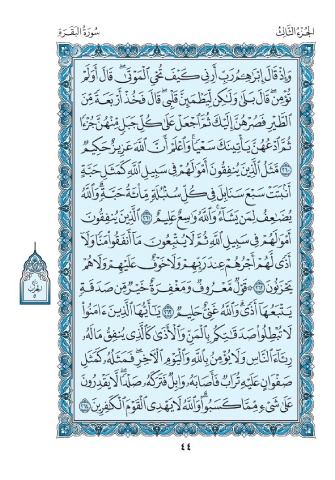 الجزء الثالث
سورة البقرة
وَإِذْ قَالَ إِبْرَٰهِـۧمُ رَبِّ أَرِنِى كَيْفَ تُحْىِ ٱلْمَوْتَىٰ ۖ قَالَ أَوَلَمْ
تُؤْمِن ۖ قَالَ بَلَىٰ وَلَـٰكِن لِّيَطْمَئِنَّ قَلْبِى ۖ قَالَ فَخُذْ أَرْبَعَةً مِّنَ
ٱلطَّيْرِ فَصُرْهُنَّ إِلَيْكَ ثُمَّ ٱجْعَلْ عَلَىٰ كُلِّ جَبَلٍ مِّنْهُنَّ جُزْءًا
ثُمَّ ٱدْعُهُنَّ يَأْتِينَكَ سَعْيًا ۚ وَٱعْلَمْ أَنَّ ٱللَّهَ عَزِيزٌ حَكِيمٌ
٢٦٠ مَّثَلُ ٱلَّذِينَ يُنفِقُونَ أَمْوَٰلَهُمْ فِى سَبِيلِ ٱللَّهِ كَمَثَلِ حَبَّةٍ
أَنۢبَتَتْ سَبْعَ سَنَابِلَ فِى كُلِّ سُنۢبُلَةٍ مِّا۟ئَةُ حَبَّةٍ ۗ وَٱللَّهُ
يُضَـٰعِفُ لِمَن يَشَآءُ ۗ وَٱللَّهُ وَٰسِعٌ عَلِيمٌ ٢٦١ ٱلَّذِينَ يُنفِقُونَ
أَمْوَٰلَهُمْ فِى سَبِيلِ ٱللَّهِ ثُمَّ لَا يُتْبِعُونَ مَآ أَنفَقُوا۟ مَنًّا وَلَآ
أَذًى ۙ لَّهُمْ أَجْرُهُمْ عِندَ رَبِّهِمْ وَلَا خَوْفٌ عَلَيْهِمْ وَلَا هُمْ
يَحْزَنُونَ ٢٦٢ ۞ قَوْلٌ مَّعْرُوفٌ وَمَغْفِرَةٌ خَيْرٌ مِّن صَدَقَةٍ
يَتْبَعُهَآ أَذًى ۗ وَٱللَّهُ غَنِىٌّ حَلِيمٌ ٢٦٣ يَـٰٓأَيُّهَا ٱلَّذِينَ ءَامَنُوا۟
لَا تُبْطِلُوا۟ صَدَقَـٰتِكُم بِٱلْمَنِّ وَٱلْأَذَىٰ كَٱلَّذِى يُنفِقُ مَالَهُۥ
رِئَآءَ ٱلنَّاسِ وَلَا يُؤْمِنُ بِٱللَّهِ وَٱلْيَوْمِ ٱلْـَٔاخِرِ ۖ فَمَثَلُهُۥ كَمَثَلِ
صَفْوَانٍ عَلَيْهِ تُرَابٌ فَأَصَابَهُۥ وَابِلٌ فَتَرَكَهُۥ صَلْدًا ۖ لَّا يَقْدِرُونَ
عَلَىٰ شَىْءٍ مِّمَّا كَسَبُوا۟ ۗ وَٱللَّهُ لَا يَهْدِى ٱلْقَوْمَ ٱلْكَـٰفِرِينَ ٢٦٤
٤٤